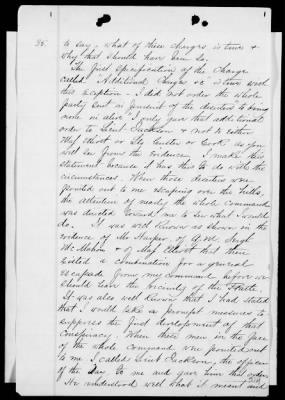 35.
to say, what of these charges is true &
why that should have been so.
The first Specification of the Charge
called "Additional Charges &c" is true with
this exception - I did not order the whole
party sent in pursuit of the deserters "to bring
none in alive" I only gave that additional
order to Lieut Jackson & not to either
Maj Elliott or Lts Custer or Cook as you
will see from the evidence. I make this
statement because it has this to do with the
circumstances. When those deserters were
pointed out to me escaping over the hills,
the attention of nearly the whole command
was directed toward me to see what I would
do. It was well known as shown in the
evidence of Mr Harper, of A.M. Sergt
McMahon & of Maj Elliott that there
existed a combination for a general
escapade from my command before we
should leave the vicinity of the Platte.
It was also well known that I had stated
that I would take a prompt measures to
suppress the first development of that
conspiracy. When these men in the face
of the whole command were pointed out
to me I called Lieut Jackson, the officer
of the Day to me and gave him this order.
He understood well what it meant and